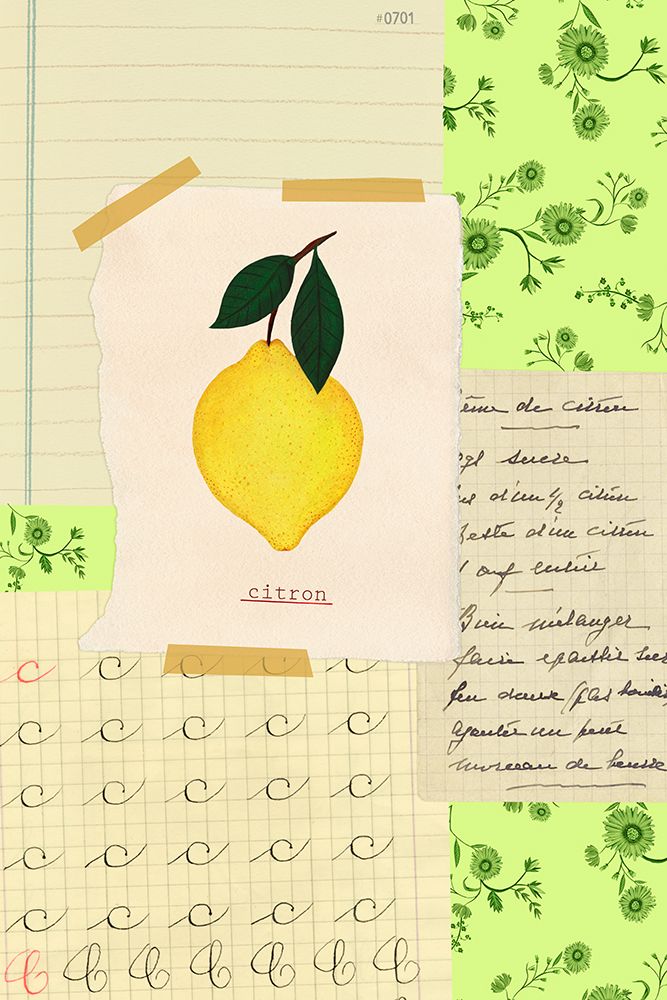 #0701
citron
ème de citron
sucre
d'un 1/2 citron
Zeste d'un citron
1 œuf entier
Bien mélanger
faire épaissir sur
feu doux (plus
ajouter un petit
morceau de beurre
c c c c c
c c c c c
c c c c c
c c c c c
c c c c c
C C C C C C C